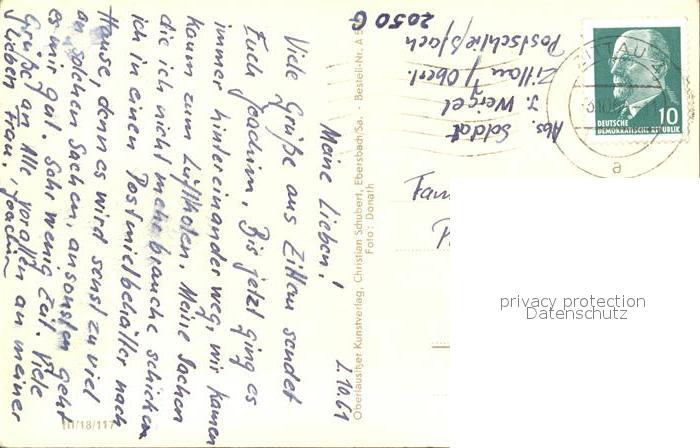 2.10.61
Meine Lieben!
Viele Grüße aus Zittau sendet
Euch Joachim. Bis jetzt ging es
immer hintereinander weg, wir kamen
kaum zum Luftholen. Meine Sachen
die ich nicht mehr brauche schicken
ich in einen Postmietbehälter nach
Hause, denn es wird sonst zu viel
an solchen Sachen. ansonsten geht
es mir gut. Sehr wenig Zeit. Viele
Grüße an Alle vor allen an meiner
lieben Frau. Joachim
III/18/117
Oberlausitzer Kunstverlag, Christian Schubert, Ebersbach/Sa. - Bestell-Nr. A 5
Foto: Donath
2050 G
Abs. Soldat
J. Weigel
Zittau / Oberl.
Postschließfach
ZITTAU
a
10
DEUTSCHE
DEMOKRATISCHE REPUBLIK
Fam
privacy protection
Datenschutz